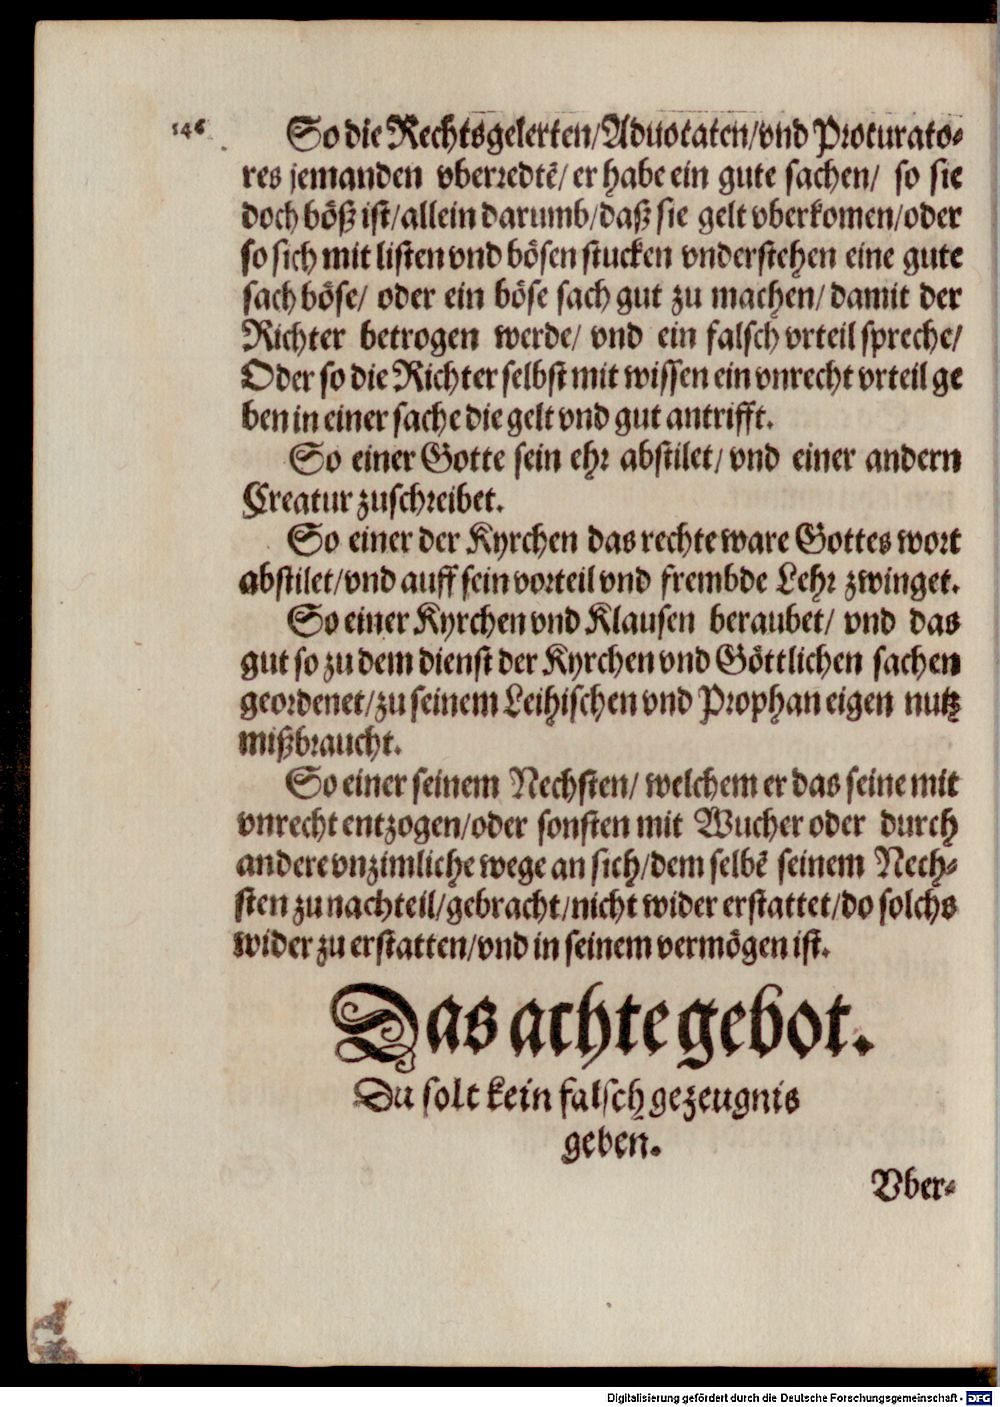 146
So die Rechtsgelerten/Aduocaten/vnd Procurato-
res jemanden vberredtē/ er habe ein gute sachen/ so sie
doch böß ist/allein darumb/daß sie gelt vberkomen/oder
so sich mit listen vnd bösen stucken vnderstehen eine gute
sach böse/ oder ein böse sach gut zu machen/damit der
Richter betrogen werde/ vnd ein falsch vrteil spreche/
Oder so die Richter selbst mit wissen ein vnrecht vrteil ge
ben in einer sache die gelt vnd gut antrifft.
So einer Gotte sein ehr abstilet/ vnd einer andern
Creatur zuschreibet.
So einer der Kyrchen das rechte ware Gottes wort
abstilet/vnd auff sein vorteil vnd frembde Lehr zwinget.
So einer Kyrchen vnd Klausen beraubet/ vnd das
gut so zu dem dienst der Kyrchen vnd Göttlichen sachen
geordenet/zu seinem Leihischen vnd Prophan eigen nutz
mißbraucht.
So einer seinem Nechsten/ welchem er das seine mit
vnrecht entzogen/oder sonsten mit Wucher oder durch
andere vnzimliche wege an sich/dem selbē seinem Nech-
sten zu nachteil/gebracht/nicht wider erstattet/do solchs
wider zu erstatten/vnd in seinem vermögen ist.
Das achte gebot.
Du solt kein falsch gezeugnis
geben.
Vber-
Digitalisierung gefördert durch die Deutsche Forschungsgemeinschaft - DFG